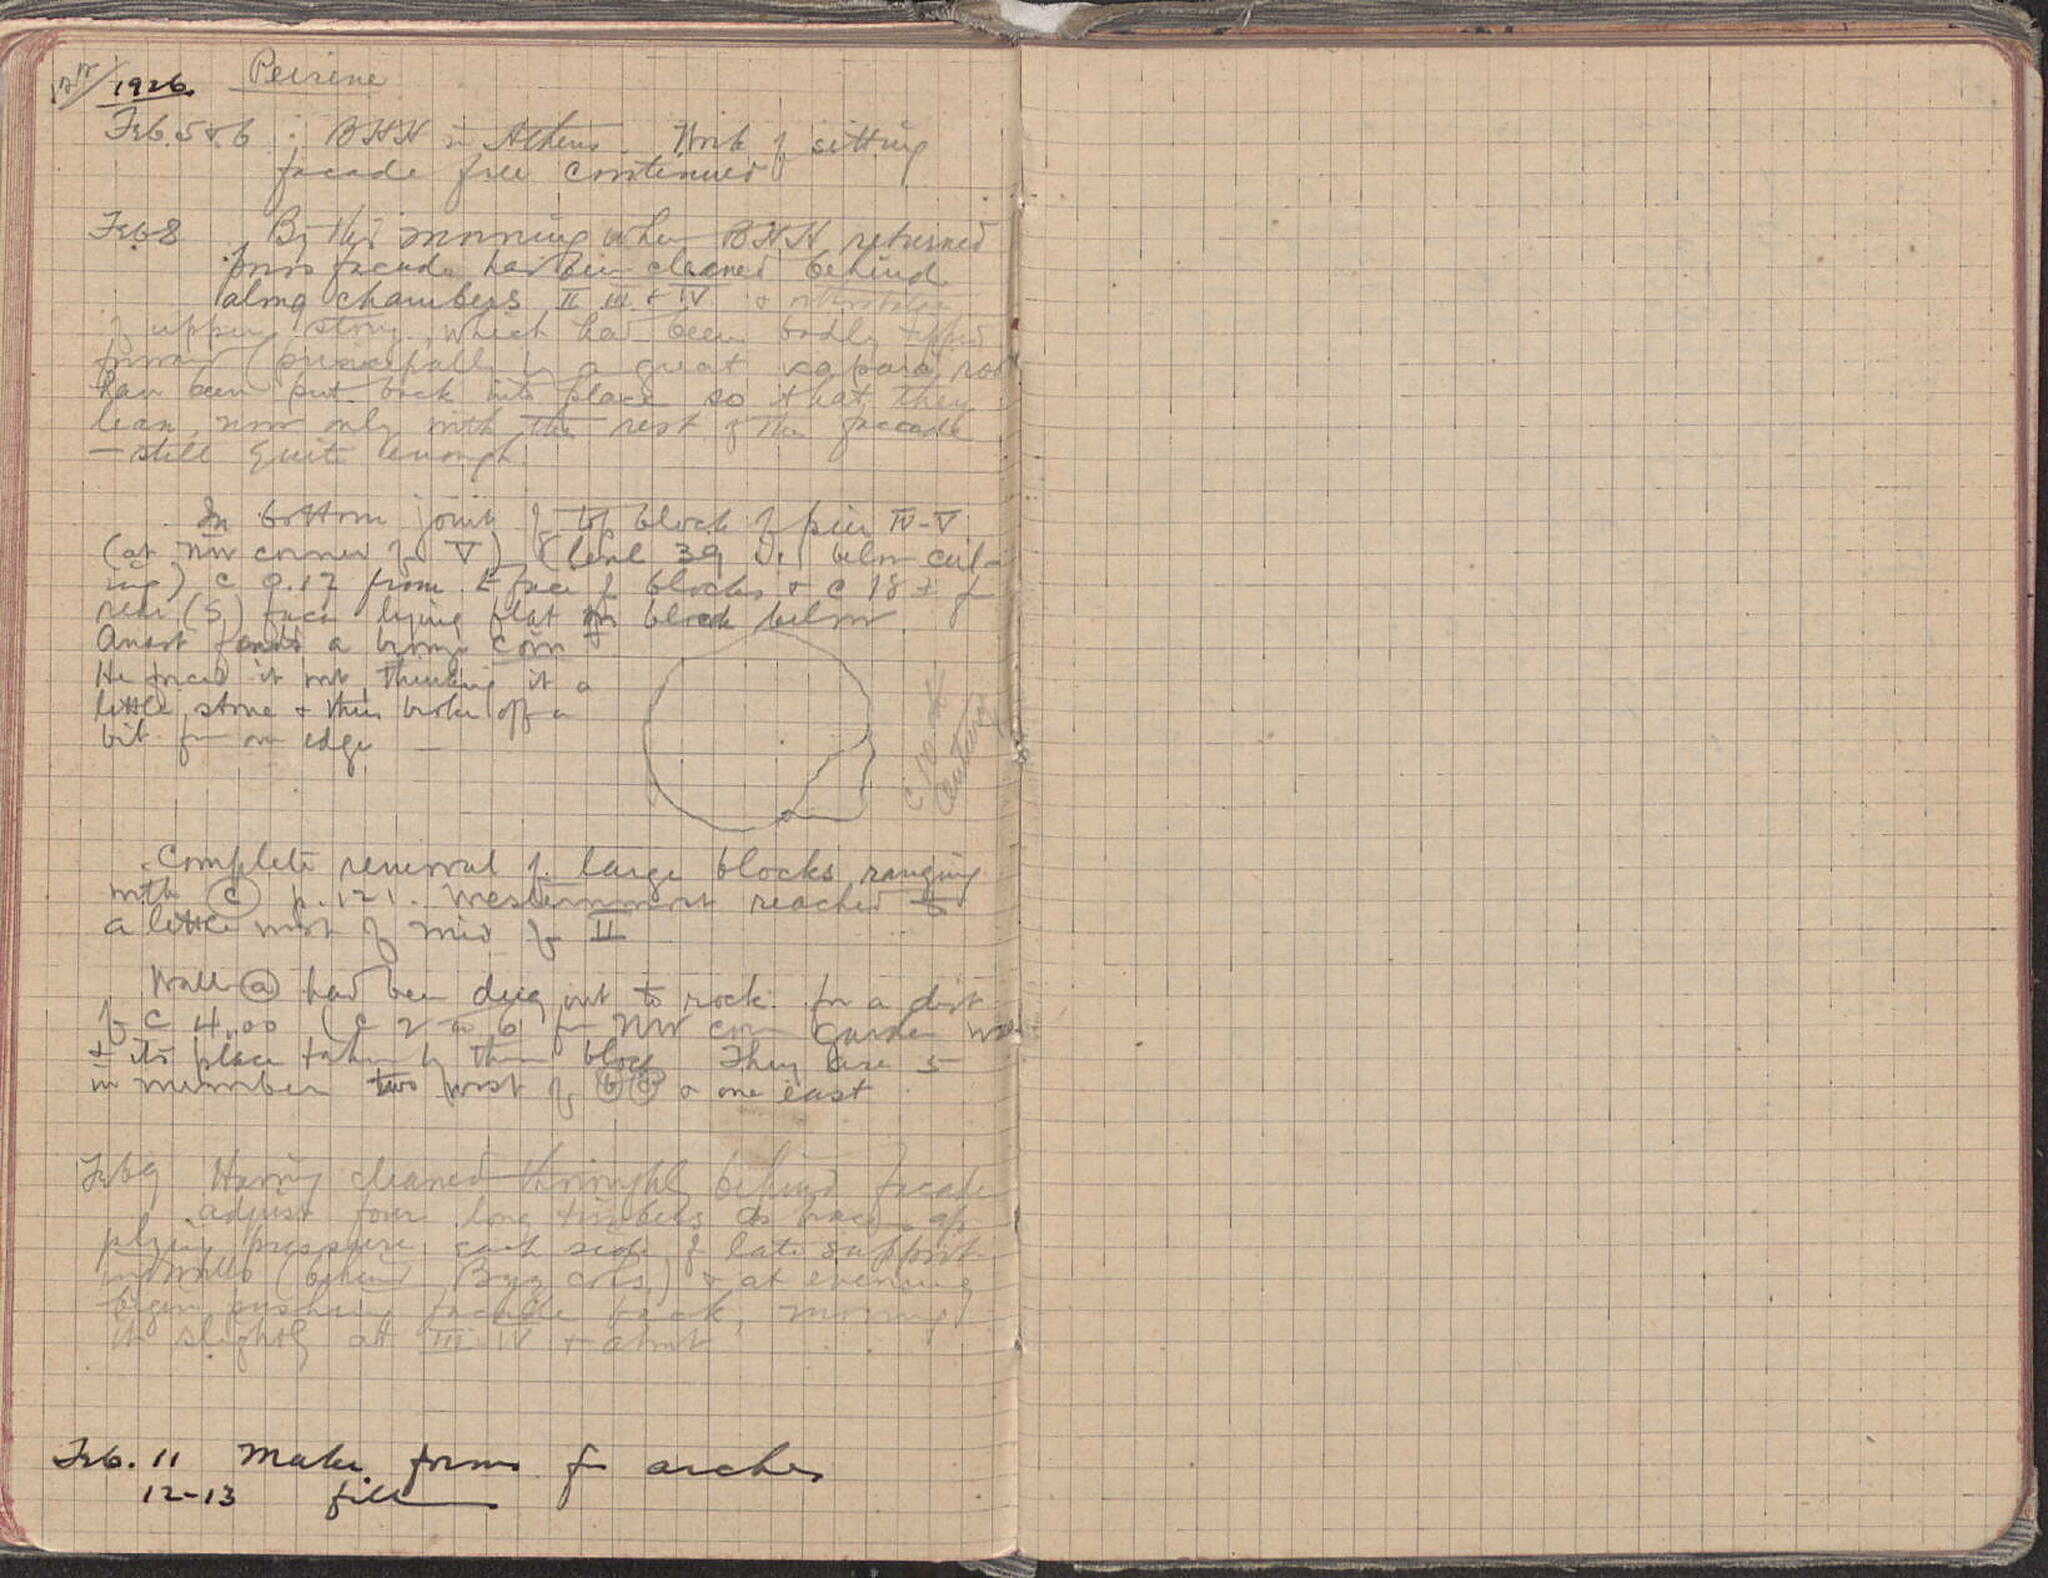 1926. Peirene
Feb. 5 & 6 : BHH in Athens. Work of setting
facade free continued
Feb 8 By this morning when BHH returned
facade had been cleaned behind
along chambers II III & IV &
of upper story, which had been badly tipped
forward (principally by a great root
have been put back into place so that they
lean now only with the rest of the facade
— still quite enough.
In bottom joint of top block of pier IV-V
(at NW corner of V) (level 39 below ceil-
ing) c 0.12 from E face of blocks & c 18 ± fr
rear (S) face lying flat on block below
Anast finds a bronze coin
He forced it out, thinking it a
little stone & thus broke off a
bit fr one edge —
century
Complete removal of large blocks ranging
with (c) p. 121. Westernmost reached to
a little west of mid of II
Wall (a) had been dug out to rock for a dist
of c 4.00 (c 2 to 6 fr NW corn
& its place taken by these blocks They are 5
in number two west of (b) (c) & one east
Feb 9 Having cleaned thoroughly behind facade
adjust four long timbers as braces ap-
plying pressure each side of late support
walls (behind Byz cols.) & at evening
begin pushing facade back, moving
it slightly at III-IV & about
Feb. 11 Make forms for arches
12-13 fill